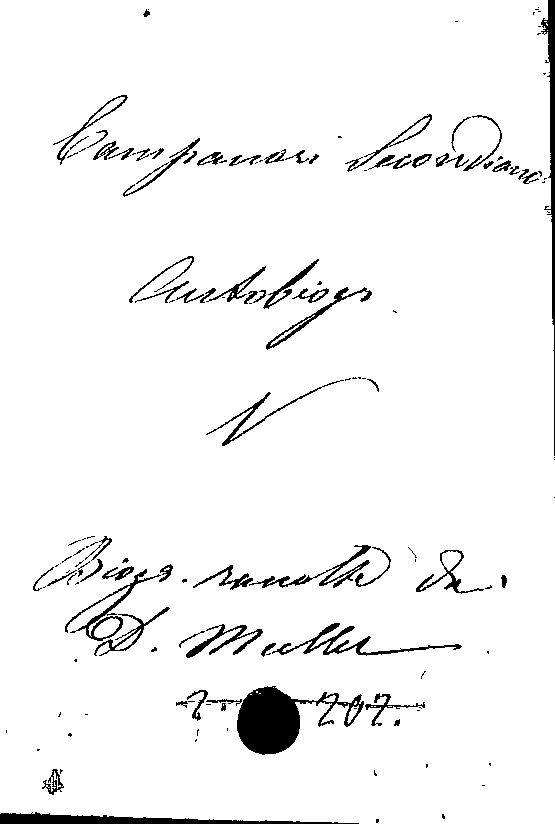 Campanari Secondiano
Autobiogr
V
Biogr. racolte da
D. Muller
202.